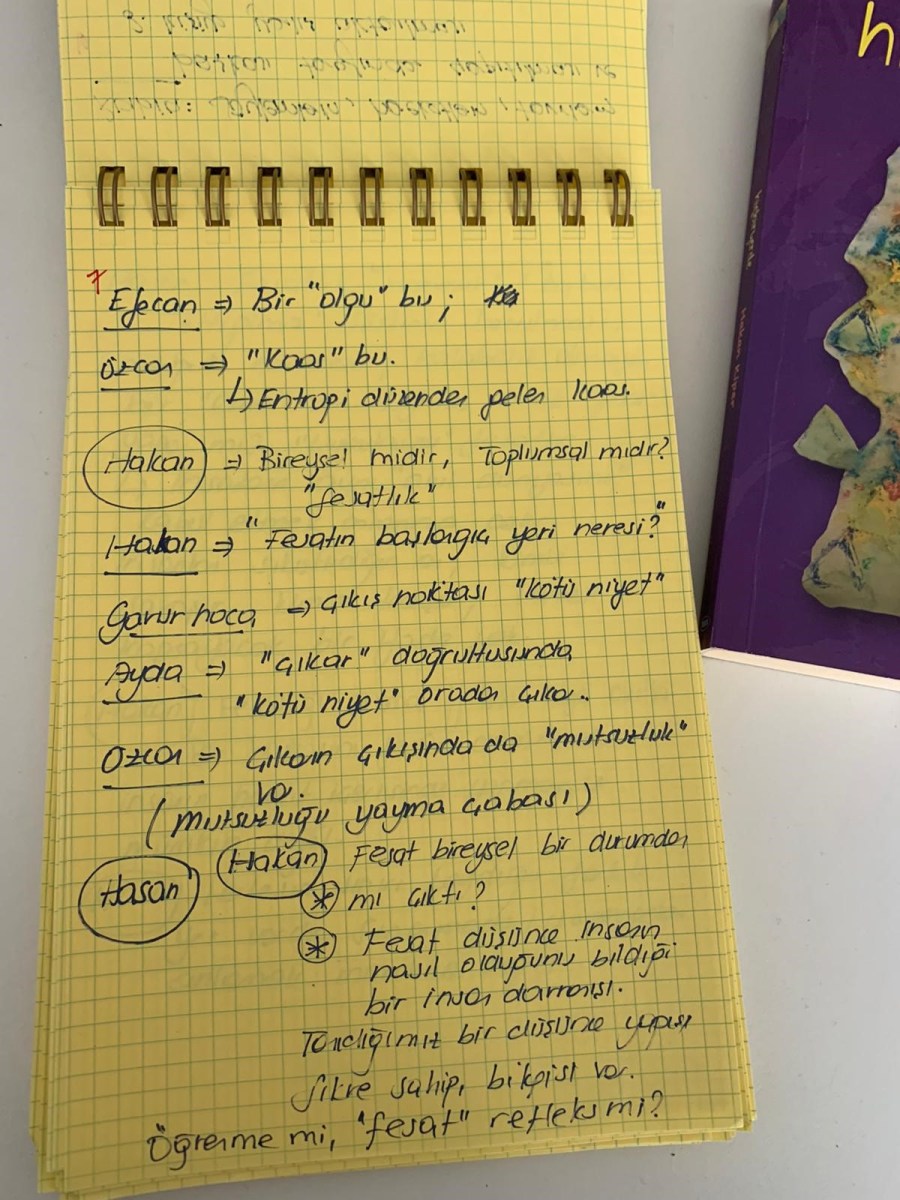 7
Efecan ⇒ Bir "olgu" bu;
Özcan ⇒ "Kaos" bu.
↳ Entropi düzenden gelen kaos.
Hakan ⇒ Bireysel midir, Toplumsal mıdır?
"fesatlık"
Hakan ⇒ "Fesatın başlangıç yeri neresi?"
hoca ⇒ Çıkış noktası "kötü niyet"
Ayda ⇒ "Çıkar" doğrultusunda
"kötü niyet" oradan çıkar.
Özcan ⇒ Çıkarın çıkışında da "mutsuzluk"
var.
(mutsuzluğu yayma çabası)
Hasan Hakan Fesat bireysel bir durumdan
* mı çıktı?
* Fesat düşünce insanın
nasıl olduğunu bildiği
bir insan
Tanıdığımız bir düşünce yapısı
fikre sahip, bilgisi var.
Öğrenme mi, "fesat" refleks mi?
Hakan Kiper